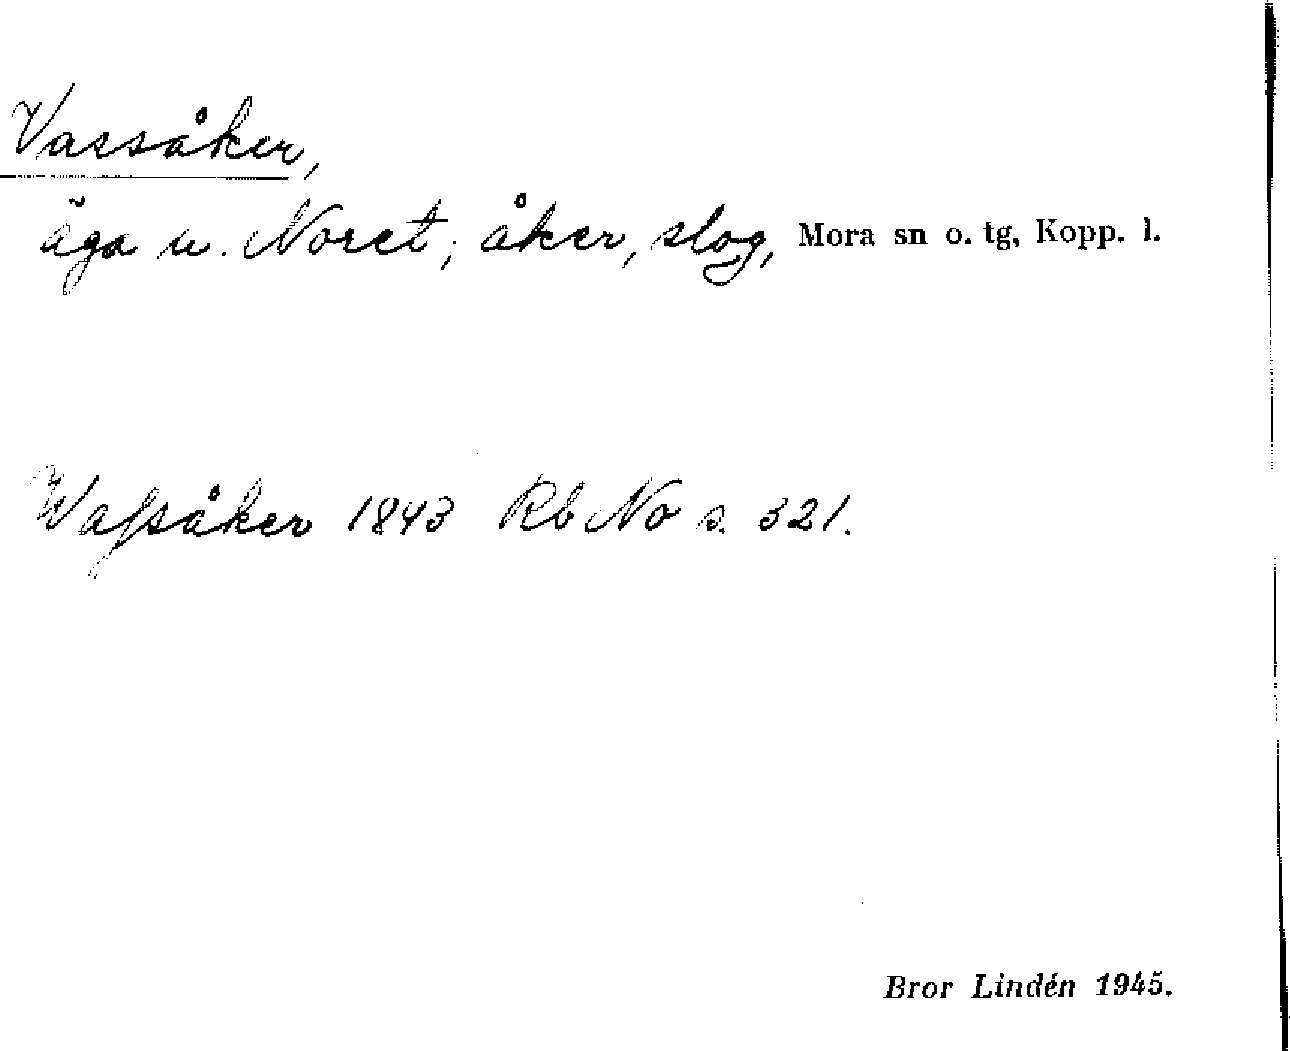 Vassåker,
äga u. Noret; åker, slog, Mora sn o. tg, Kopp. l.
Waſsåker 1843 Rb No s. 321.
Bror Lindén 1945.